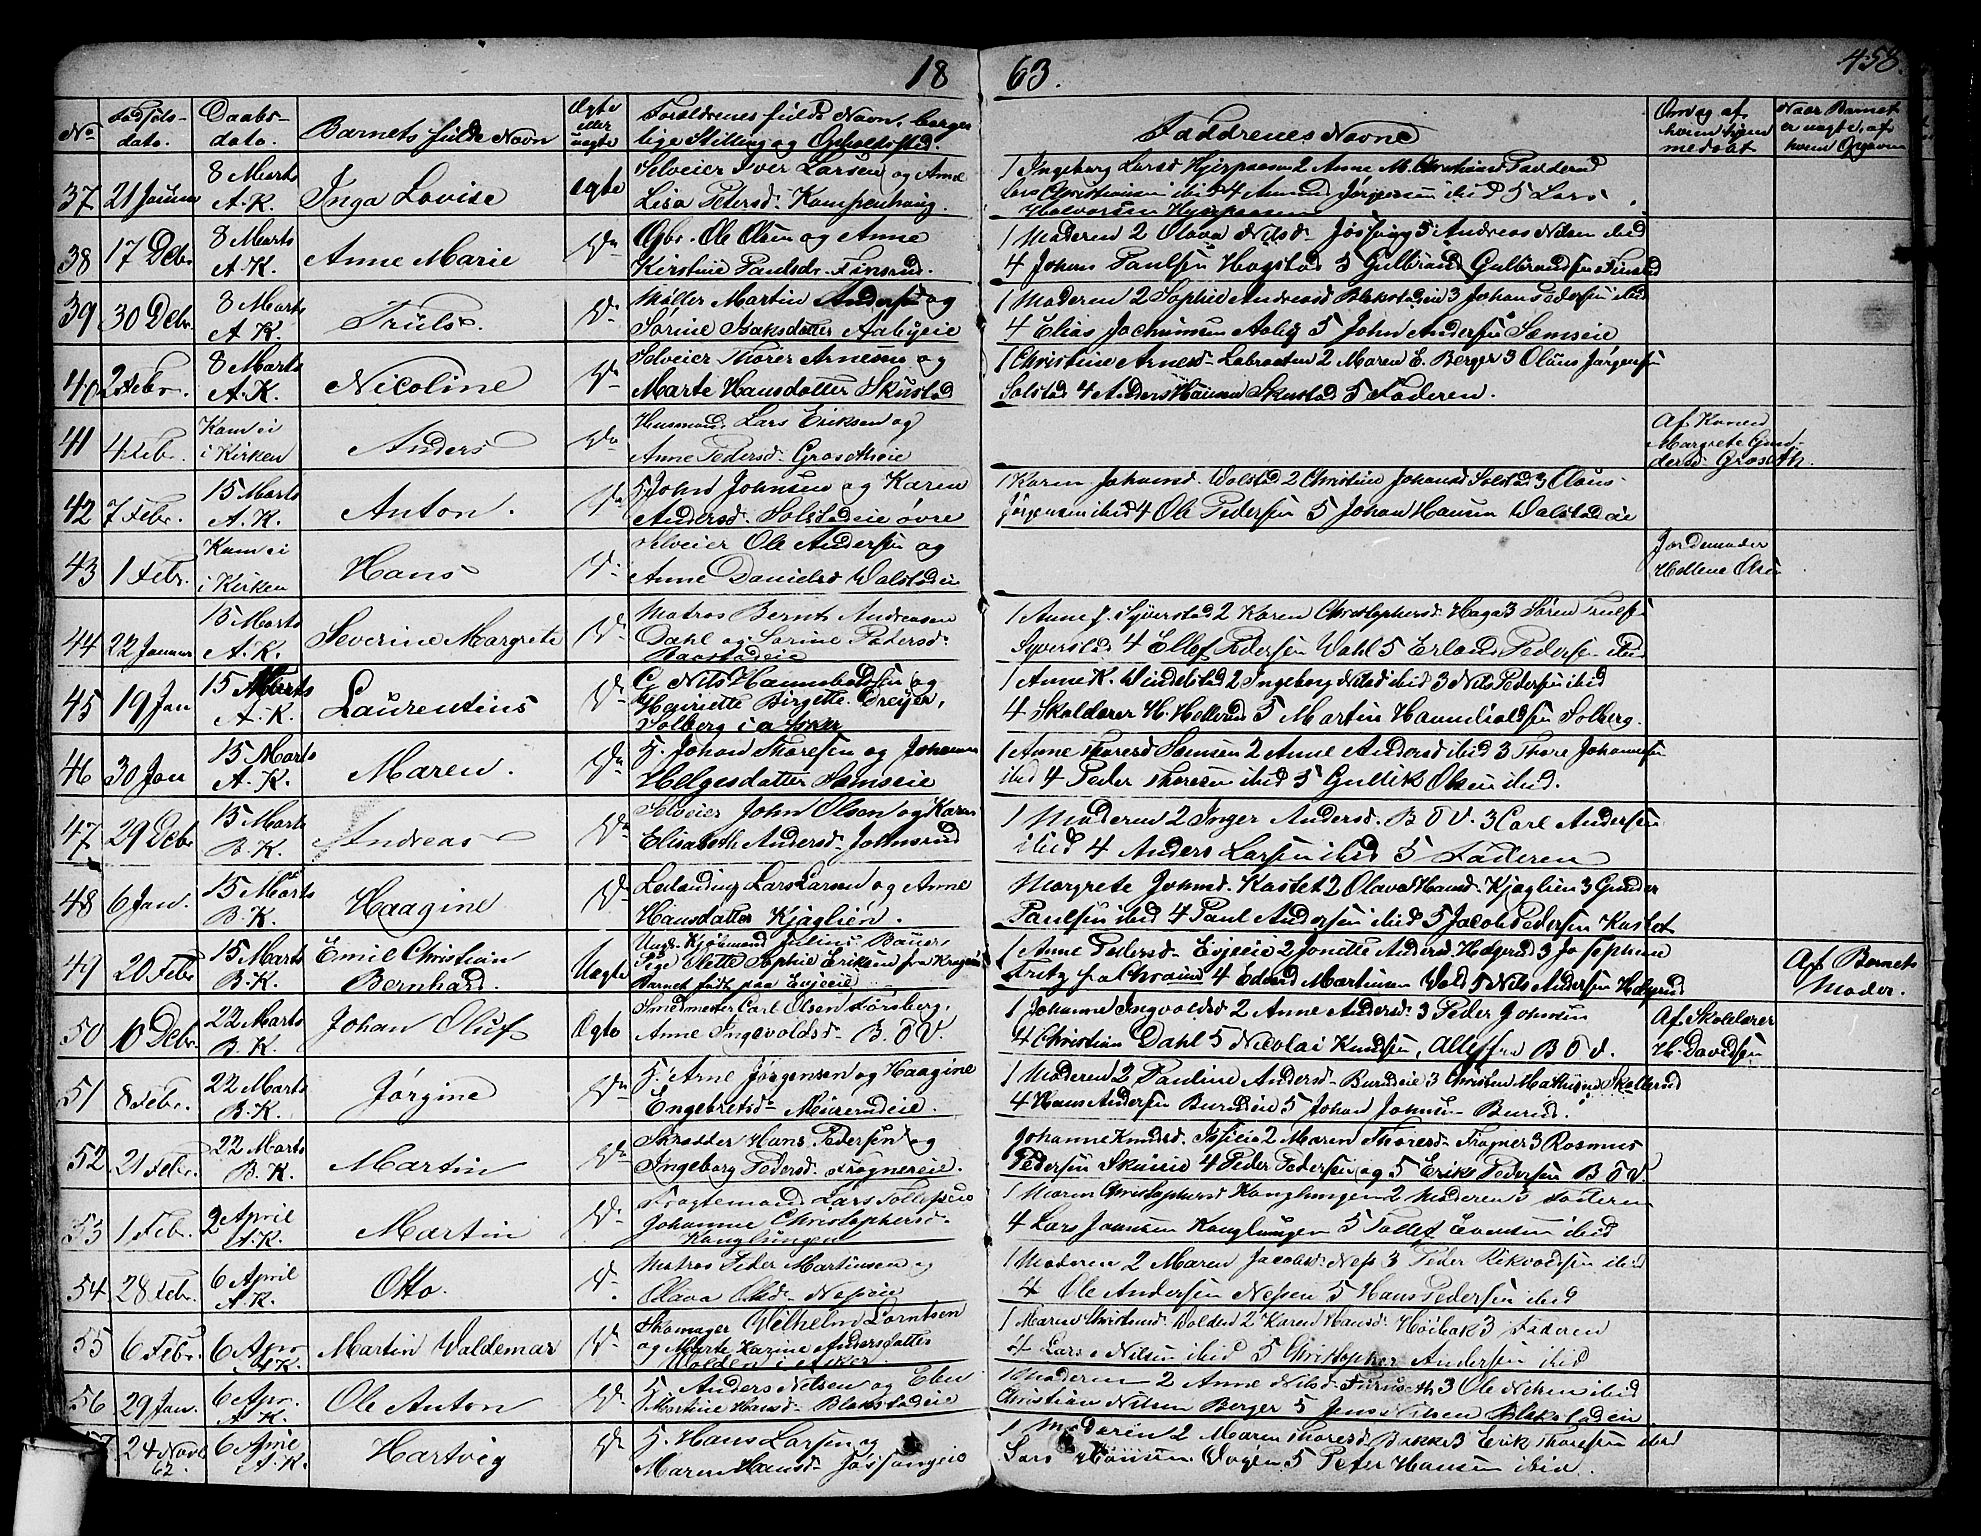 18 63. 458.
No Fødsels-dato. Daabs-dato. Barnets fulde Navn Ægte eller uægte Forældrenes fulde Navn, borgerlige Stilling og Opholdssted. Faddrenes Navne Om og af hvem hjemmedøbt Naar Barnet er uægte, af hvem Opgaven
37 21 Januar 8 Marts A.K. Inga Lovise Ægte Selveier Iver Larsen og Anne
Lisa Petersd. Kampenhaug.
1 Ingeborg Larsd Hjerpaasen 2 Anne M. Christiansd
Lars Christiansen ibid 4 Amund Jørgensen ibid 5 Lars
Halvorsen Hjerpaasen
38 17 Debr. 8 Marts A.K. Anne Marie Do Ole Olsen og Anne
Kirstine Paulsdr. Finsrud.
1 Moderen 2 Olava Nilsd. Jøssing 3 Andreas Nilsen ibid
4 Johan Paulsen Hogstad 5 Gulbrand Gulbrandsen
39 30 Debr. 8 Marts A.K. Truls. Do Møller Martin Andersen og
Sørine Isaksdatter Aabyeie
1 Moderen 2 Sophie Andreasd Blakstadeie 3 Johan Pedersen ibid
4 Elias Jochumsen Aaby 5 John Andersen Semseie
40 2 Febr. 8 Marts A.K. Nicoline Do Selveier Thorer Arnesen og
Marte Hansdatter Skustad
1 Christine Arnesd. Labraaten 2 Maren E. Berger 3 Olaus Jørgensen
Solstad 4 Anders Hansen Skustad 5 Faderen.
41 4 Febr. Kom ei i Kirken Anders Do Husmand Lars Eriksen og
Anne Pedersd. Grosetheie
Af Konen
Margrete Gun-
dersd. Groseth.
42 7 Febr. 15 Marts A.K. Anton. Do John Johnsen og Karen
Andersd. Solstadeie øvre
1 Karen Johannsd. Wolstad 2 Christine Johansd Solstad 3 Olaus
Jørgensen ibid 4 Ole Pedersen 5 Johan Hansen Walstadeie
43 1 Febr. Kom ei i Kirken Hans Do Selveier Ole Andersen og
Anne Danielsd Walstadeie
Jordemoder
Hellene Olsen
44 22 Januar 15 Marts A.K. Severine Margrete Do Matros Bernt Andreasen
Dahl og Sørine Pedersd.
Baastadeie
1 Anne J. Syverstad 2 Karen Christophersd. Haga 3 Søren Truelsen
Syverstad 4 Ellef Pedersen Dahl 5 Erland Pedersen ibid
45 19 Jan 15 Marts A.K. Laurentius Do G. Nils Hannibalsen og
Henriette Birgitte Dreyer,
Solberg i Asker
1 Anne K. Windelstad 2 Ingeborg Nilsd ibid 3 Nils Pedersen ibid
4 Skolelærer H. Hellerud 5 Martin Hannibalsen Solberg.
46 30 Jan 15 Marts A.K. Maren. Do H. Johan Thoresen og Johanne
Helgesdatter Semseie
1 Anne Thoresd Semsen 2 Anne Andersd ibid 3 Thore Johannesen
ibid 4 Peder Thoresen ibid 5 Gullik Olsen ibid.
47 29 Debr 15 Marts B.K. Andreas Do Selveier John Olsen og Karen
Elisabeth Andersd. Johnsrud
1 Moderen 2 Inger Andersd. B Ø V. 3 Carl Andersen
ibid 4 Anders Larsen ibid 5 Faderen
48 6 Jan. 15 Marts B.K. Haagine Do Leilænding Lars Larsen og Anne
Hansdatter Kjaglien.
Margrete Johnsd. Kastet 2 Olava Hansd. Kjaglien 3 Gunder
Paulsen ibid 4 Paul Andersen ibid 5 Jacob Pedersen Kastet
49 20 Febr 15 Marts B.K. Emil Christian
Bernhard. Uægte Ungk. Kjøbmand Julius Bauer,
Pige Olette Sophie Eriksen fra Kragerø
Barnet født paa Evjeeie
1 Anne Pedersd. Evjeeie 2 Jonette Andersd. Helgerud 3 Josephine
Fritz fra 4 Edvard Martinsen Wold 5 Nils Andersen Helgerud
Af Barnets
Moder.
50 10 Debr. 22 Marts B.K. Johan Oluf Ægte Smedmester Carl Olsen Forsberg,
Anne Ingevoldsd. B. Ø V.
1 Johanne Ingvoldsd 2 Anne Andersd. 3 Peder Johnsen
4 Christian Dahl 5 Nicolai Knudsen, Alle fra B Ø V.
Af Skolelærer
H. Davidsen
51 8 Febr. 22 Marts B.K. Jørgine Do H. Arne Jørgensen og Haagine
Engebretsd. Murerudeie.
1 Moderen 2 Pauline Andersd. Burudeie 3 Christen Mathisen Skollerud
4 Hans Andersen Burudeie 5 Johan Johnsen Burud.
52 21 Febr. 22 Marts B.K. Martin Do Skrædder Hans Pedersen og
Ingeborg Pedersd. Frognereie.
Johanne Knudsd. Isieie 2 Maren Thoresd. Frogner 3 Rasmus
Pedersen Skuieie 4 Peder Pedersen og 5 Erik Pedersen B Ø V.
53 1 Febr. 2 April A.K. Martin Do Fragtemand Lars Tollefsen
Johanne Christophersd.
Kanglungen
1 Maren Christophersd Kanglungen 2 Moderen 3 Faderen
4 Lars Jaansen Kanglungen 5 Tollef Evensen ibid
54 28 Febr. 6 April A.K. Otto. Do Matros Peder Martinsen og
Olava Olsd. Neseie
1 Moderen 2 Maren Jacobsd. Nes 3 Peder Rikvoldsen ibid
4 Ole Andersen Nesen 5 Hans Pedersen ibid
55 6 Febr. 6 Apr. A.K. Martin Waldemar Do Skomager Wilhelm Lorntsen
og Marte Karine Andersdatter
Wolden i Asker
1 Maren Christensd. Wolden 2 Karen Hansd. Høibak 3 Faderen
4 Lars Nilsen ibid 5 Christopher Andersen ibid
56 29 Jan. 6 Apr. A.K. Ole Anton Do H. Anders Nilsen og Ellen
Martine Hansd. Blakstadeie
Moderen 2 Anne Nilsd. Furuseth 3 Ole Nilsen ibid
Christian Nilsen Berger 5 Jens Nilsen Blakstadeie
57 24 Novbr 62. 6 April A.K. Hartvig Do H. Hans Larsen og
Maren Hansd. Jøssongeie
1 Moderen 2 Maren Thoresd. Bakke 3 Erik Thoresen ibid
Lars Hansen Wogen 5 Peter Hansen ibid.